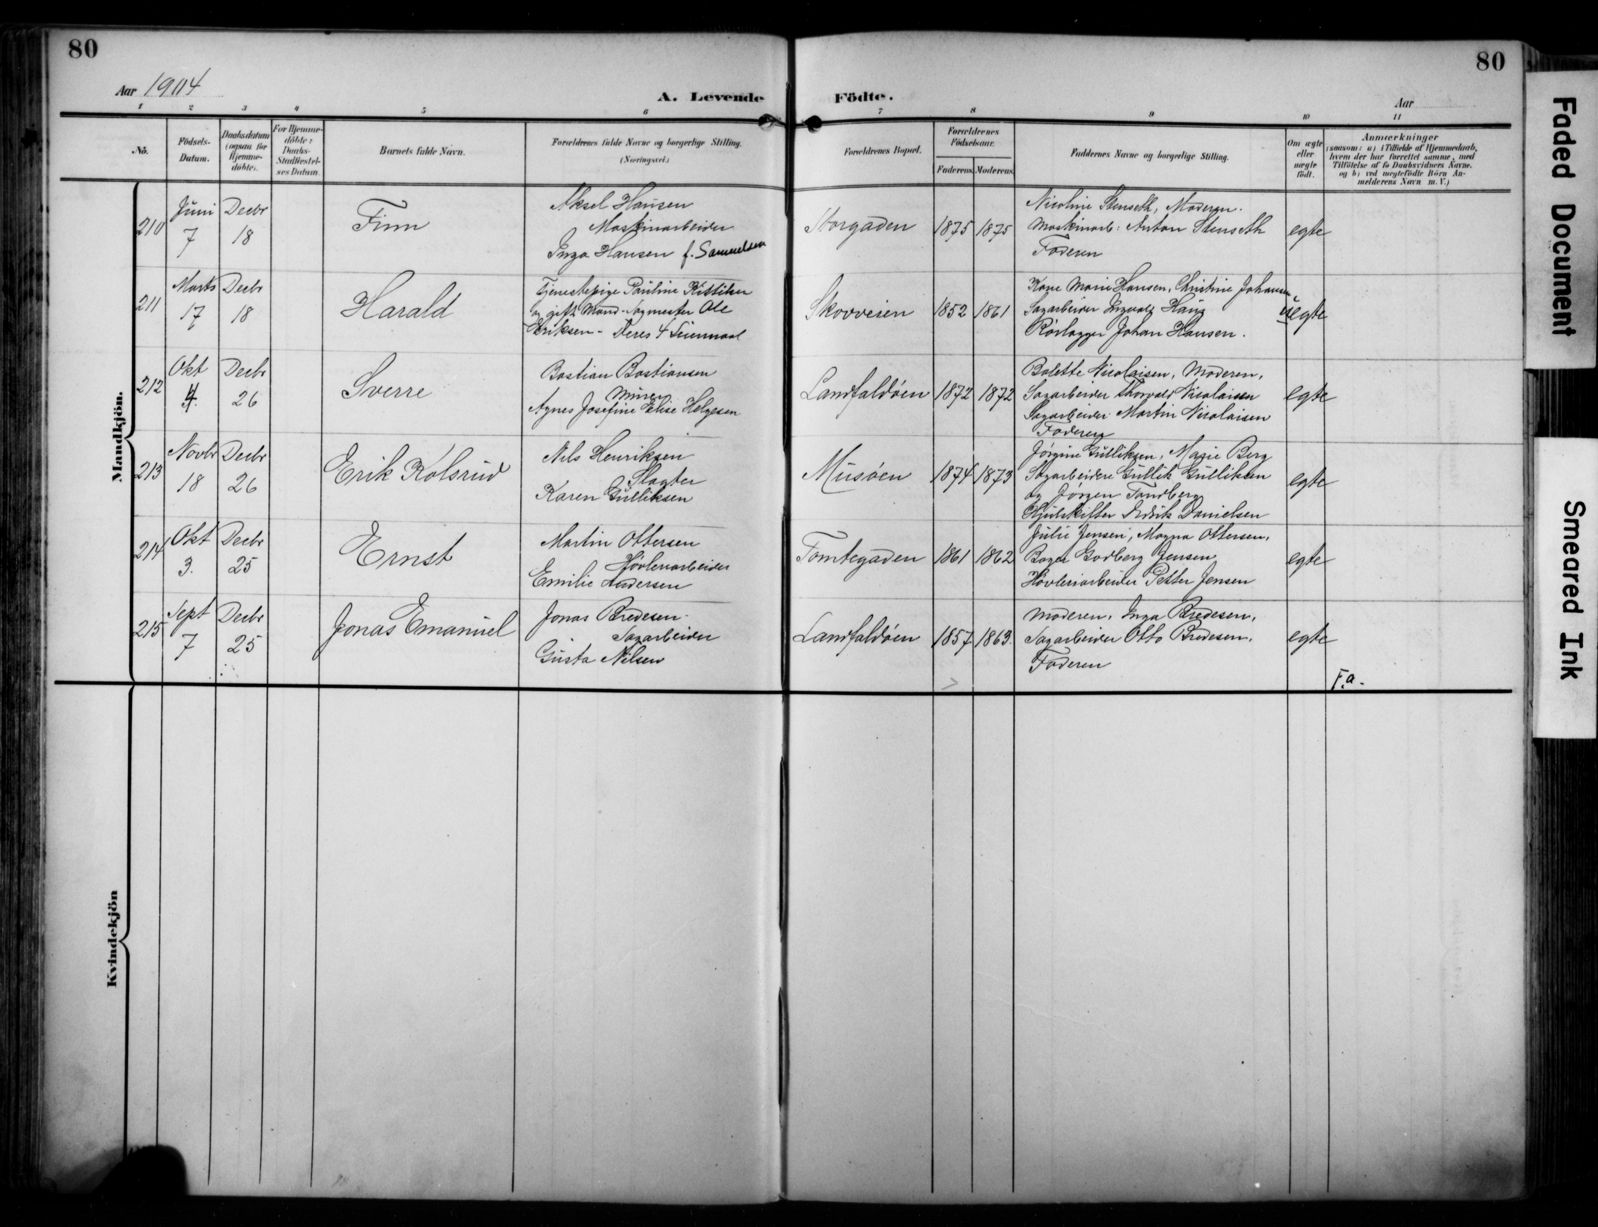 80
80
Aar 1904
A. Levende Födte.
Aar
1 2 3 4 5 6 7 8 9 10 11
No.
Födsels-Datum.
Daabsdatum (ogsaa for Hjemme-døbte).
For Hjemme-døbte: Daabs-Stadfæstel-ses Datum.
Barnets fulde Navn.
Forældrenes fulde Navne og borgerlige Stilling. (Næringsvei.)
Forældrenes Bopæl.
Forældrenes Födselsaar.
Faderens. Moderens.
Faddernes Navne og borgerlige Stilling.
Om ægte eller uægte födt.
Anmærkninger
(saasom: a) i Tilfælde af Hjemmedaab, hvem der har forrettet samme, med Tilföielse af to Daabsvidners Navne, og b) ved uegtefödte Börn An-melderens Navn m. V.)
Mandkjön.
210
Juni 7
Decbr 18
Finn
Aksel Hansen
Maskinarbeider
Inga Hansen f. Samuelsen
Storgaden
1875 1875
Nicoline Stenseth, Moderen.
Maskinarb: Anton Stenseth
Faderen
egte
211
Marts 17
Decbr 18
Harald
Tjenestepige Pauline Kittilsen
og gift Mand Sagmester Ole
Eriksen - Deres 4 Leiermaal
Skovveien
1852 1861
Kone Marie Hansen, Christine Johansen
Sagarbeider Ingvald Haug
Rørlægger Johan Hansen.
uegte
212
Okt 4.
Decbr 26
Sverre
Bastian Bastiansen
Murer
Agnes Josefine Elise Helgesen
Landfaldøen
1872 1872
Bolette Nicolaisen, Moderen,
Sagarbeider Thorvald Nicolaisen
Sagarbeider Martin Nicolaisen
Faderen
egte
213
Novbr 18
Decbr 26
Erik Kolsrud
Nils Henriksen
Slagter
Karen Gulliksen
Musøen
1874 1873
Jørgine Gulliksen, Magie Berg
Sagarbeidere Gullik Gulliksen
og Jørgen Tandberg
Hjulskifter Fredrik Danielsen
egte
214
Okt 3.
Decbr 25
Ernst
Martin Ottersen
Høvleriarbeider
Emilie Andersen
Tomtegaden
1861 1862
Julie Jensen, Magna Ottersen,
Bager Godberg Jensen
Høvleriarbeider Petter Jensen
egte
215
Sept 7
Decbr 25
Jonas Emanuel
Jonas Bredesen
Sagarbeider
Gusta Nilsen
Landfaldøen
1857 1863.
Moderen, Inga Bredesen,
Sagarbeider Otto Bredesen,
Faderen
egte
F.a.
Kvindekjön
Faded Document
Smeared Ink